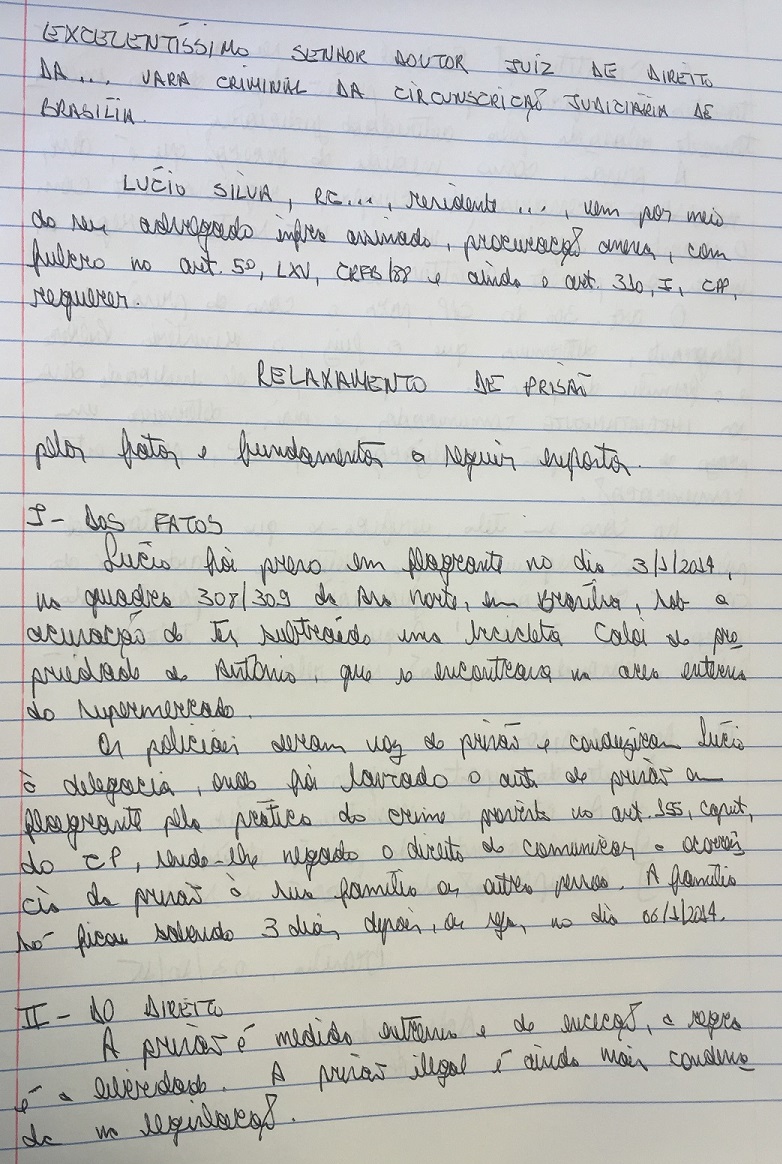 EXCELENTÍSSIMO SENHOR DOUTOR JUIZ DE DIREITO
DA ... VARA CRIMINAL DA CIRCUNSCRIÇÃO JUDICIÁRIA DE
BRASÍLIA.
LÚCIO SILVA, RG..., residente ..., vem por meio
do seu advogado infra assinado, procuração anexa, com
fulcro no art. 5º, LXV, CRFB/88 e ainda o art. 310, I, CPP,
requerer.
RELAXAMENTO DE PRISÃO
pelos fatos e fundamentos a seguir expostos.
I - DOS FATOS
Lúcio foi preso em flagrante no dia 3/1/2014,
na quadra 308/309 da Asa Norte, em Brasília, sob a
acusação de ter subtraído uma bicicleta Caloi de pro
priedade de Antônio, que se encontrava na area externa
do supermercado.
Os policiais deram voz de prisão e conduziram Lúcio
à delegacia, onde foi lavrado o auto de prisão em
flagrante pela prática do crime previsto no art. 155, caput,
do CP, sendo-lhe negado o direito de comunicar a ocorrên
cia da prisão à sua família ou outra pessoa. A família
só ficou sabendo 3 dias depois, ou seja, no dia 06/1/2014.
II - DO DIREITO
A prisão é medida extrema e de exceção, a regra
é a liberdade. A prisão ilegal é ainda mais condena
da na legislação.